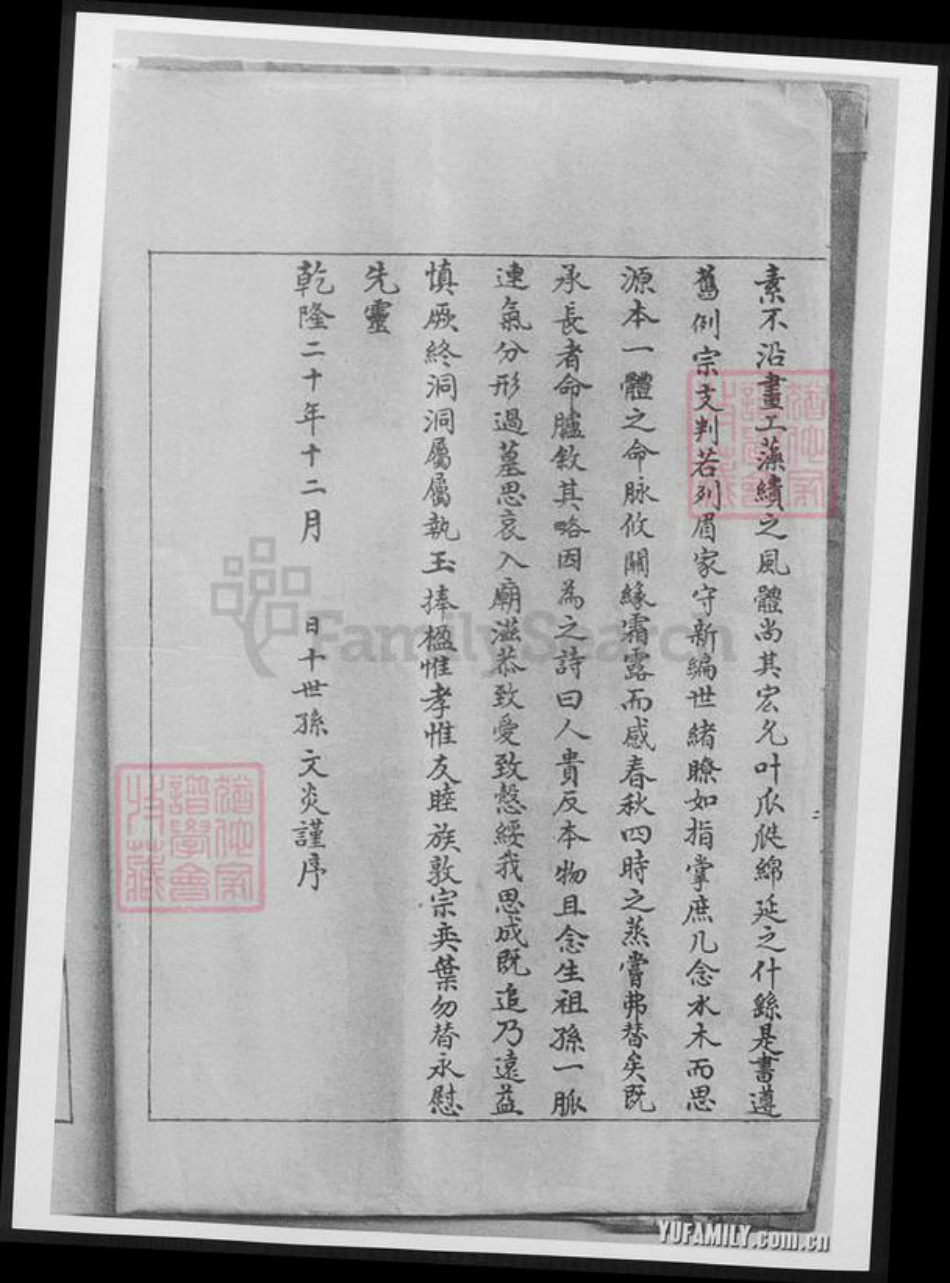 素不沿畫工藻繢之風體尚其宏允叶瓜瓞綿延之什繇是書遵
舊例宗支判若列眉家守新編世緒瞭如指掌庶几念水木而思
源本一體之命脉攸關緣霜露而感春秋四時之蒸嘗弗替矣既
承長者命臚敘其略因為之詩曰人貴反本物且念生祖孫一脈
連氣分形過墓思哀入廟滋恭致愛致慤綏我思成既追乃遠益
慎厥終洞洞屬屬執玉捧楹惟孝惟友睦族敦宗奕葉勿替永慰
先靈
乾隆二十年十二月 日十世孫文炎謹序
二
FamilySearch
YUFAMILY.com.cn